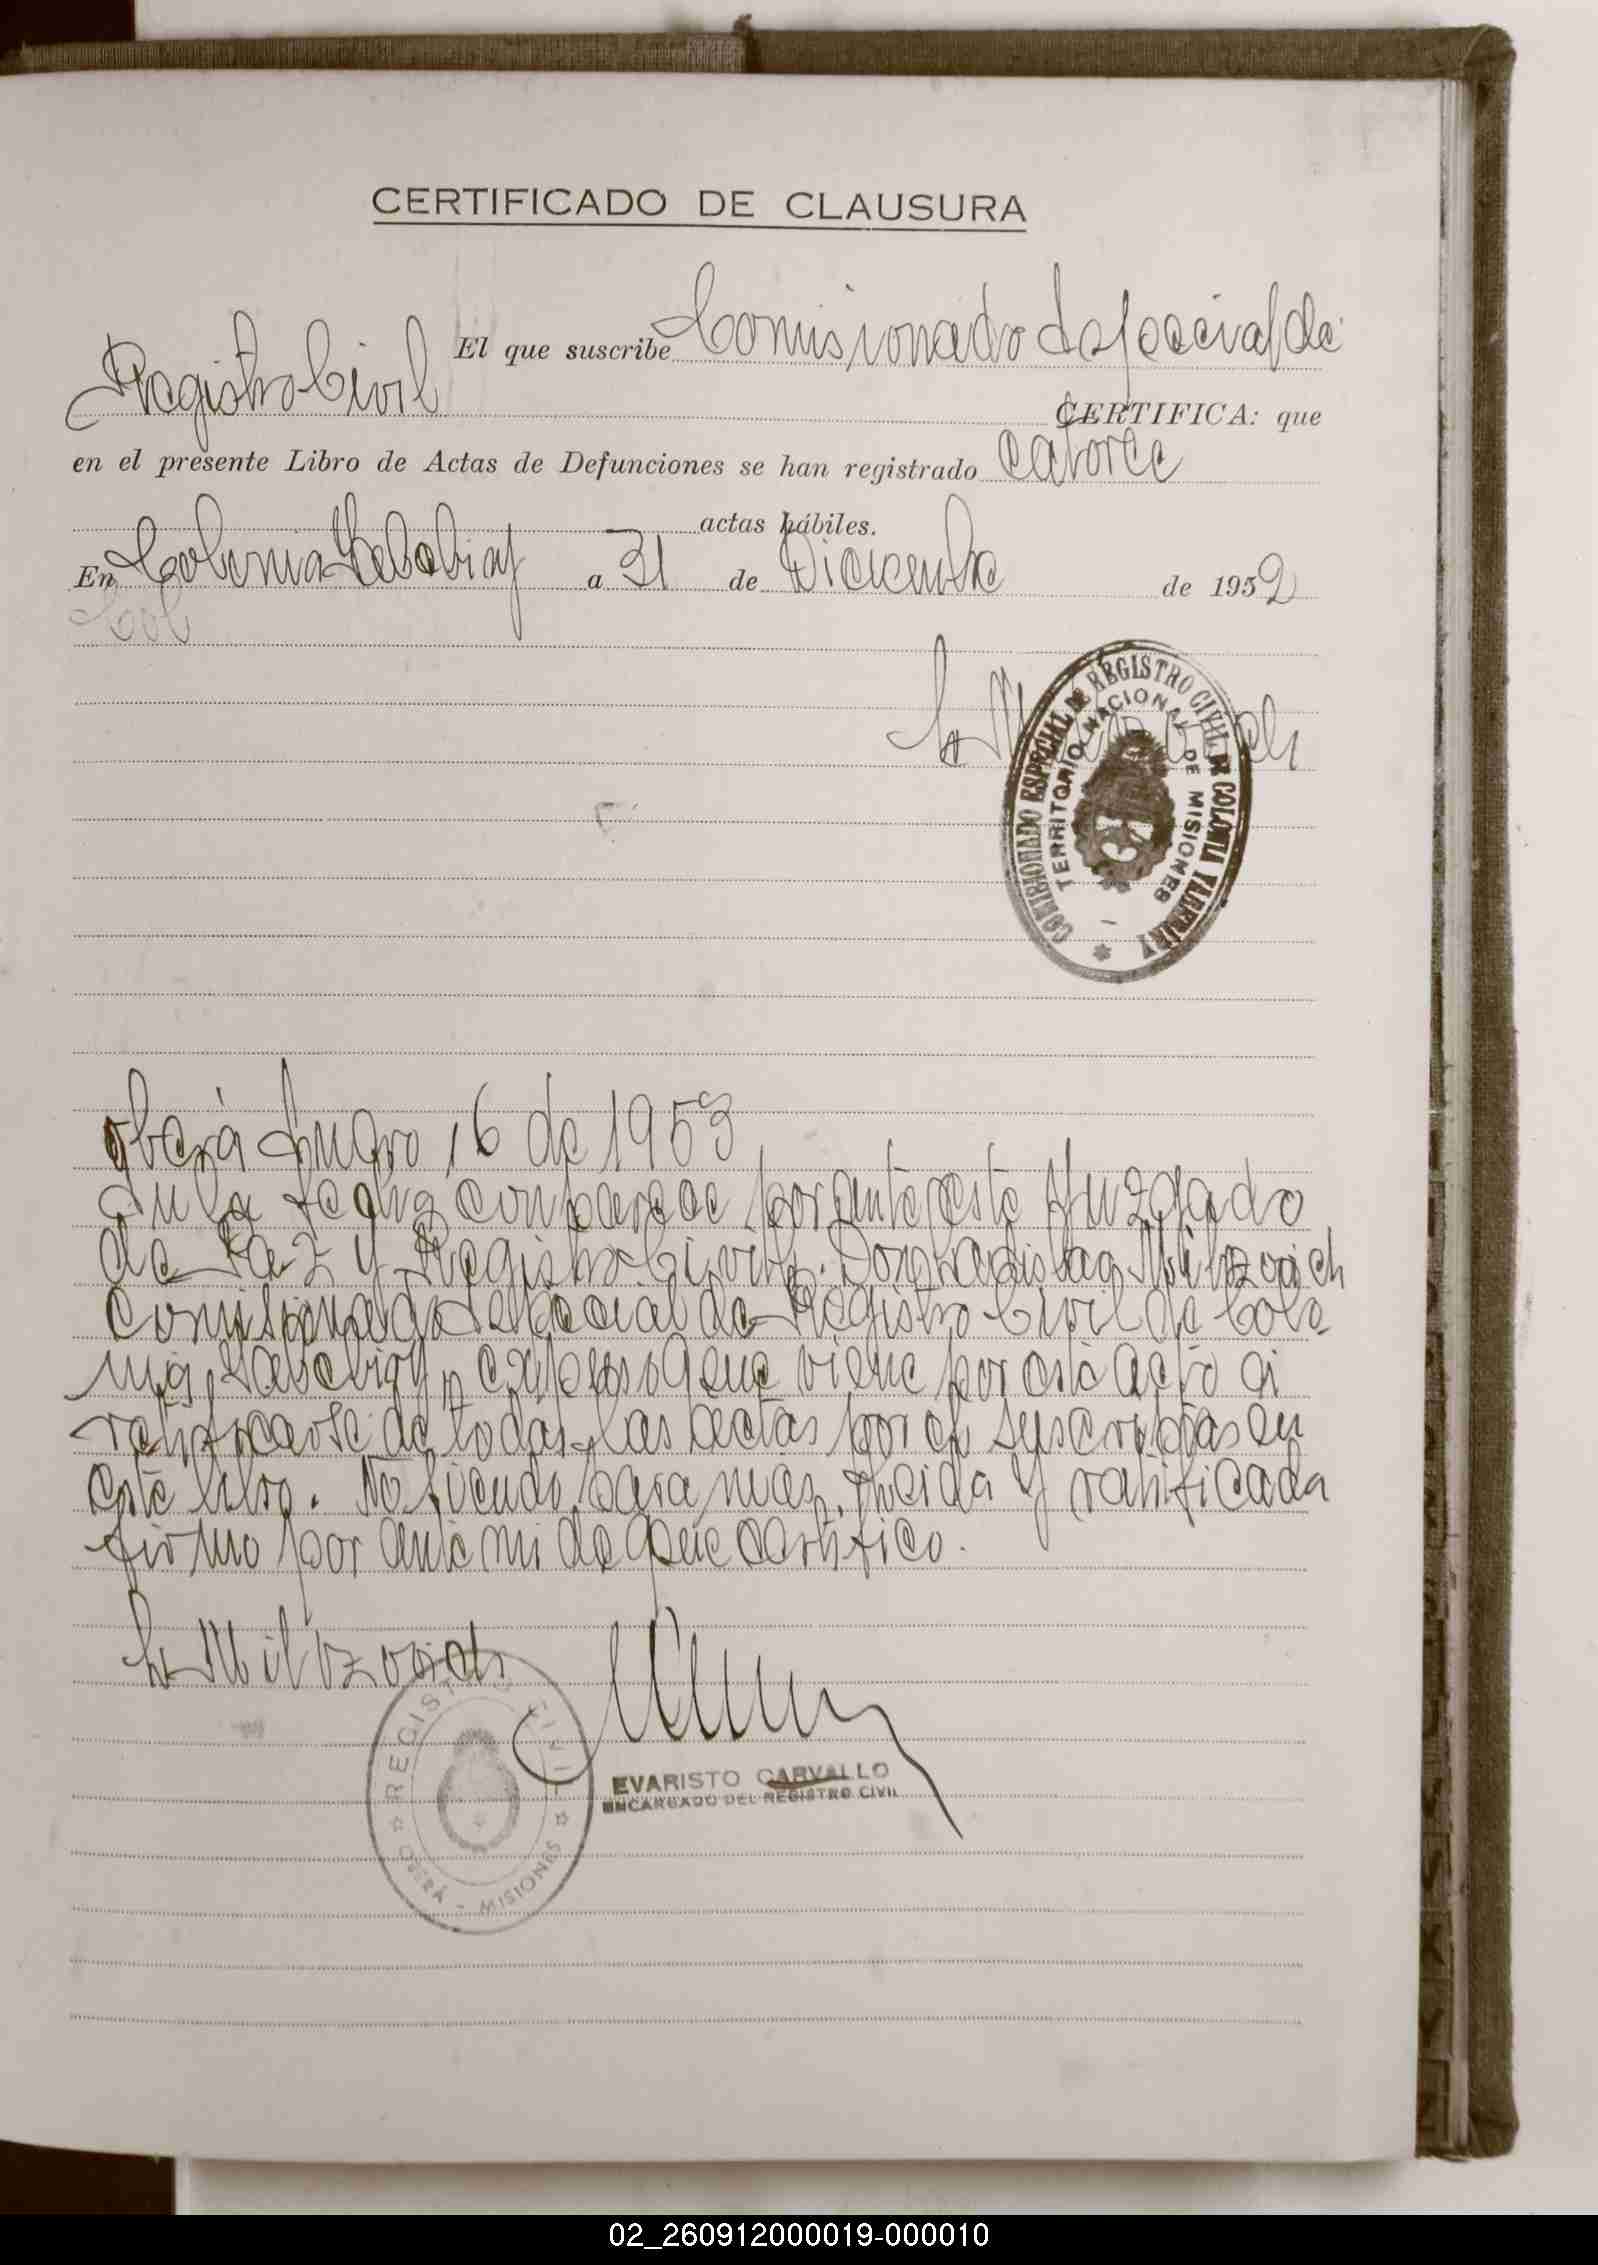 CERTIFICADO DE CLAUSURA
El que suscribe Comisionado Especial de
Registro Civil
CERTIFICA: que
en el presente Libro de Actas de Defunciones se han registrado catorce
actas hábiles.
En Colonia a 31 de Diciembre de 1952
Col
COMISIONADO ESPECIAL DE REGISTRO CIVIL DE COLONIA YABEBIRY
TERRITORIO NACIONAL DE MISIONES
Oberá Enero 16 de 1953
En la fecha comparece por ante este Juzgado
de Paz y Registro Civil, Don Ladislao Milzovich
Comisionado Especial de Registro Civil de Colo
nia Yabebiry, expuso que viene por este acto a
ratificarse de todas las actas por el suscriptas en
este libro. No siendo para mas, leida y ratificada
firmo por ante mi de que certifico.
L Milzovich
REGISTRO CIVIL
OBERÁ - MISIONES
EVARISTO CARVALLO
ENCARGADO DEL REGISTRO CIVIL
02_260912000019-000010